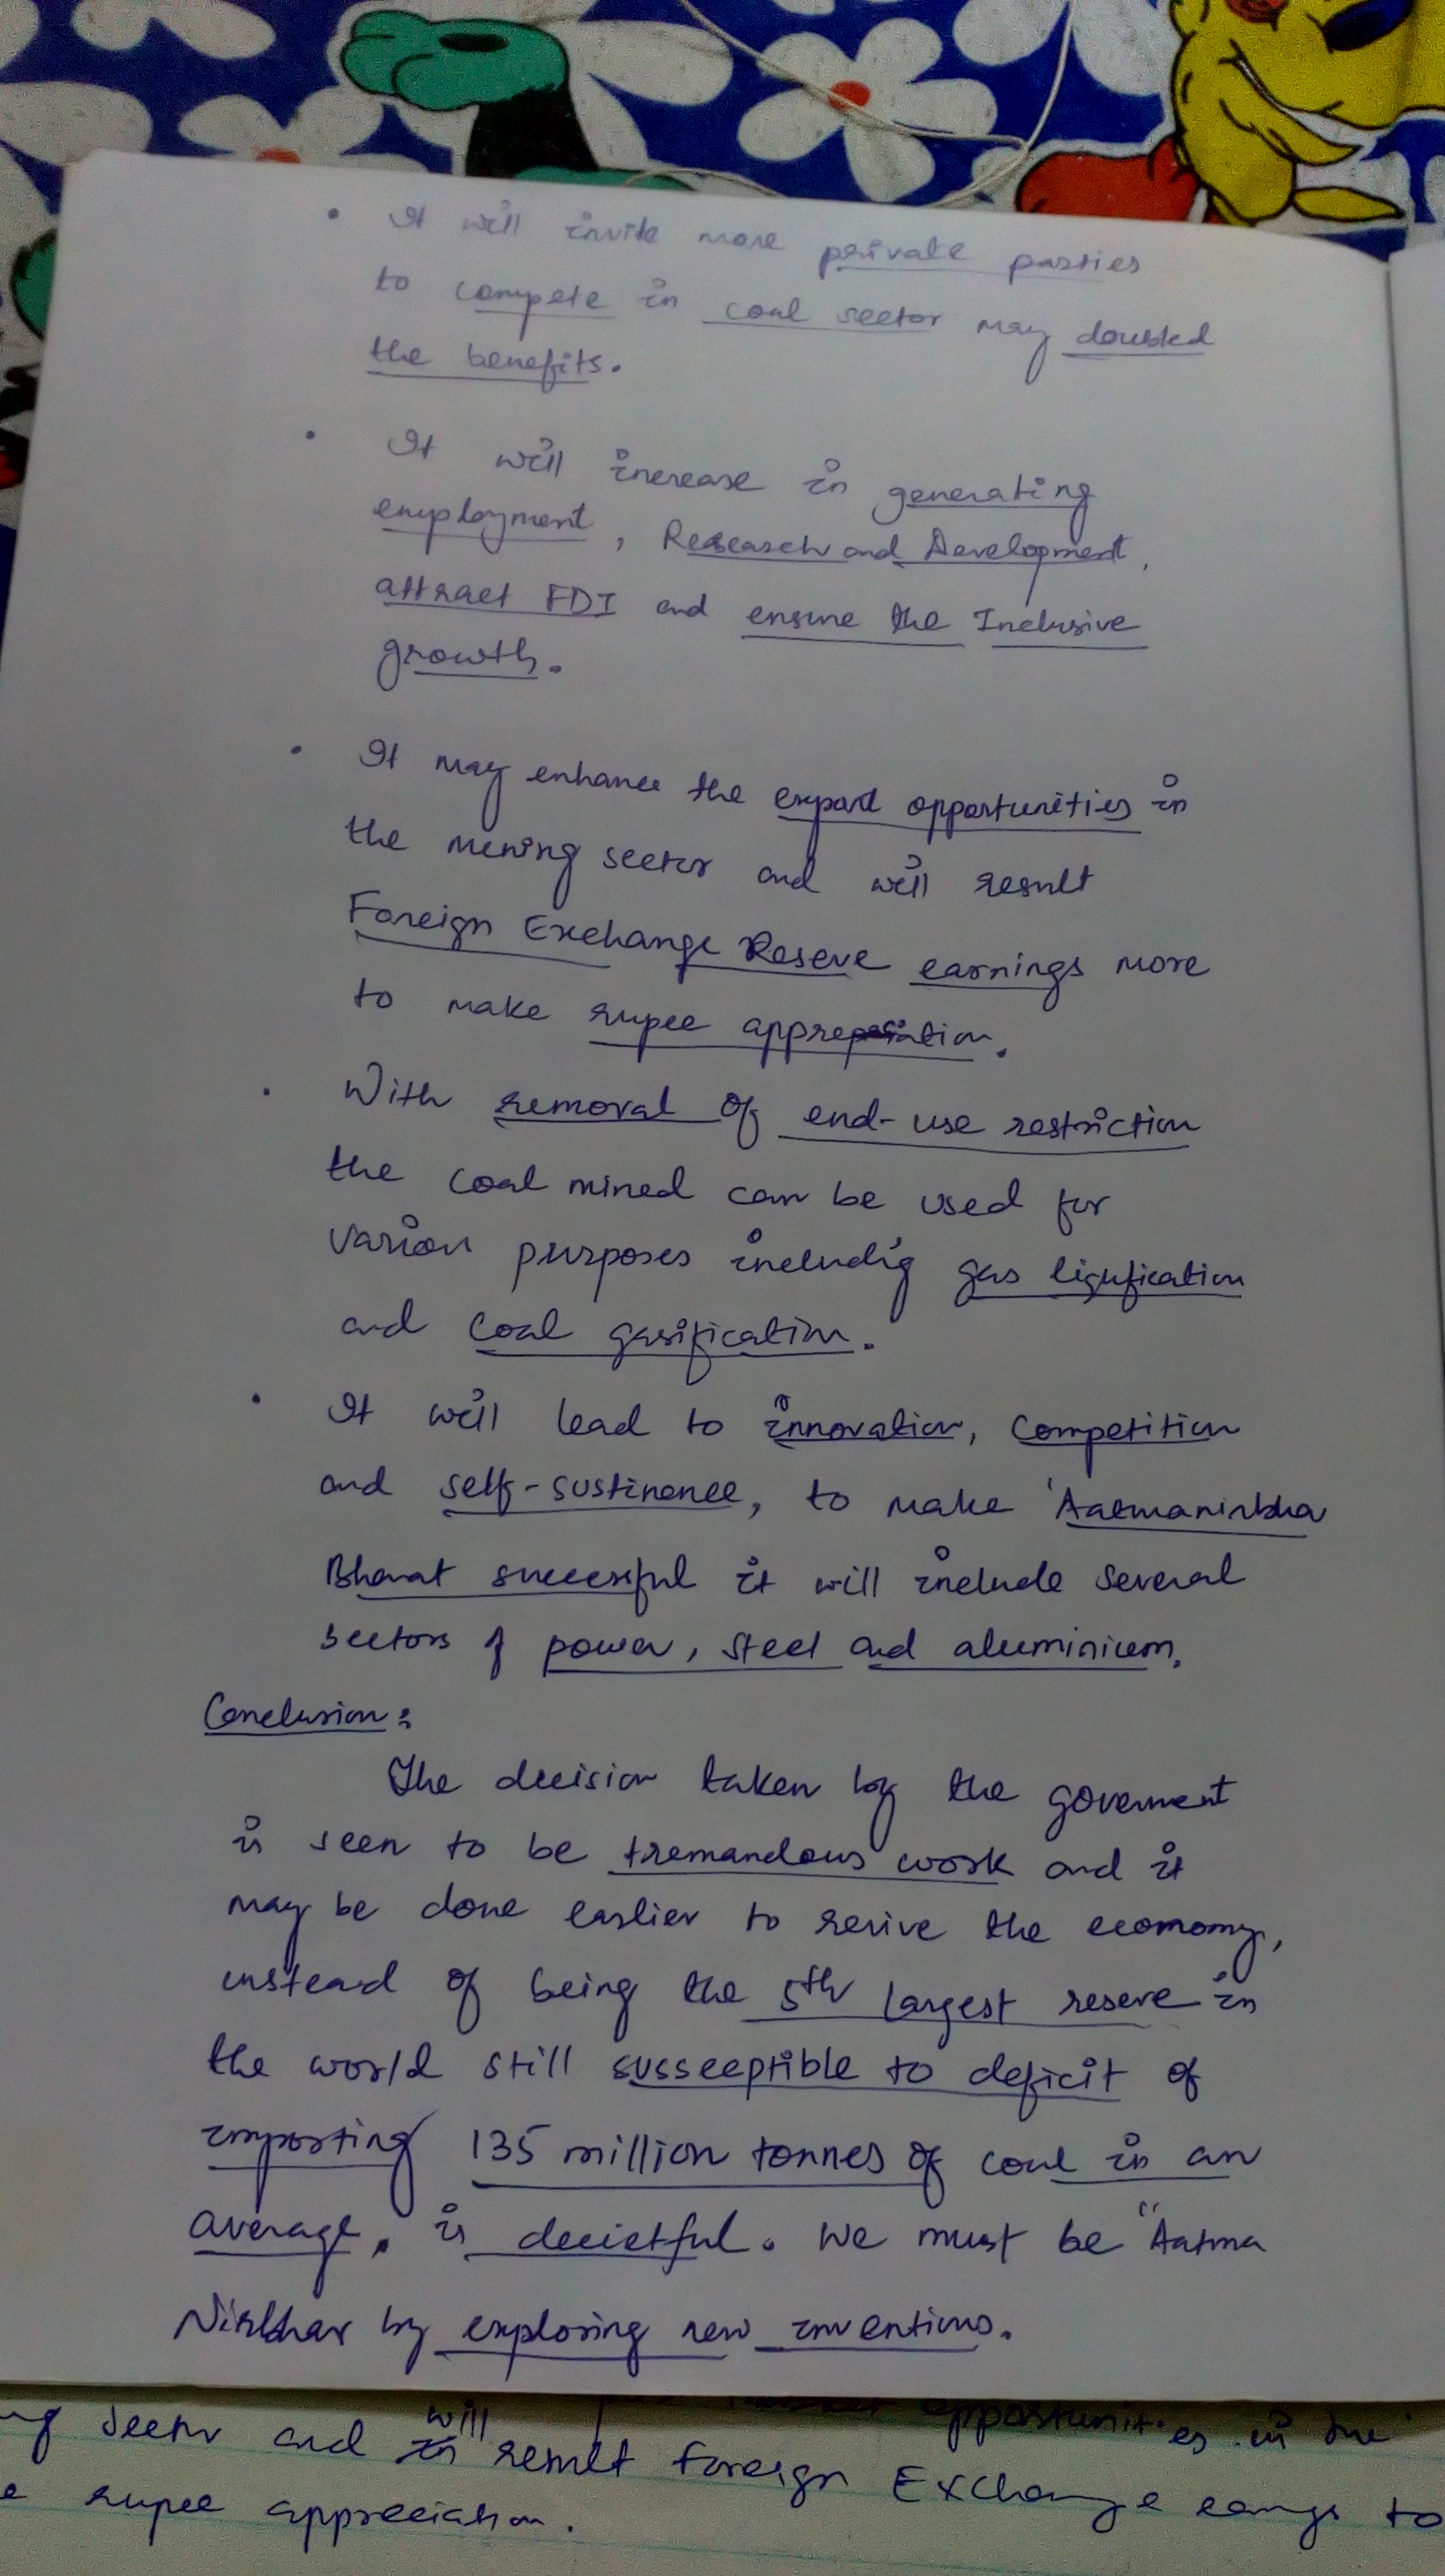 • It will invite more private parties
to compete in coal sector may doubled
the benefits.
• It will increase in generating
employment, Research and Development,
attract FDI and ensure the Inclusive
growth.
• It may enhance the export opportunities in
the mining sector and will result
Foreign Exchange Reseve earnings more
to make rupee appreciation.
• With removal of end-use restriction
the coal mined can be used for
various purposes includig gas liqufication
and coal gasification.
• It will lead to innovation, Competition
and self-sustinence, to make 'Aatmanirbha
Bharat successful it will include several
sectors of power, steel and aluminium.
Conclusion:
The decision taken by the goverment
is seen to be tremandous work and it
may be done earlier to revive the economy,
instead of being the 5th largest reseve in
the world still susseeptible to deficit of
importing 135 million tonnes of coal in an
average, is decietful. We must be "Aatma
Nirbhar by exploring new inventions.
opportunities in the
sector and will result Foreign Exchange earngs to
rupee appreciation.